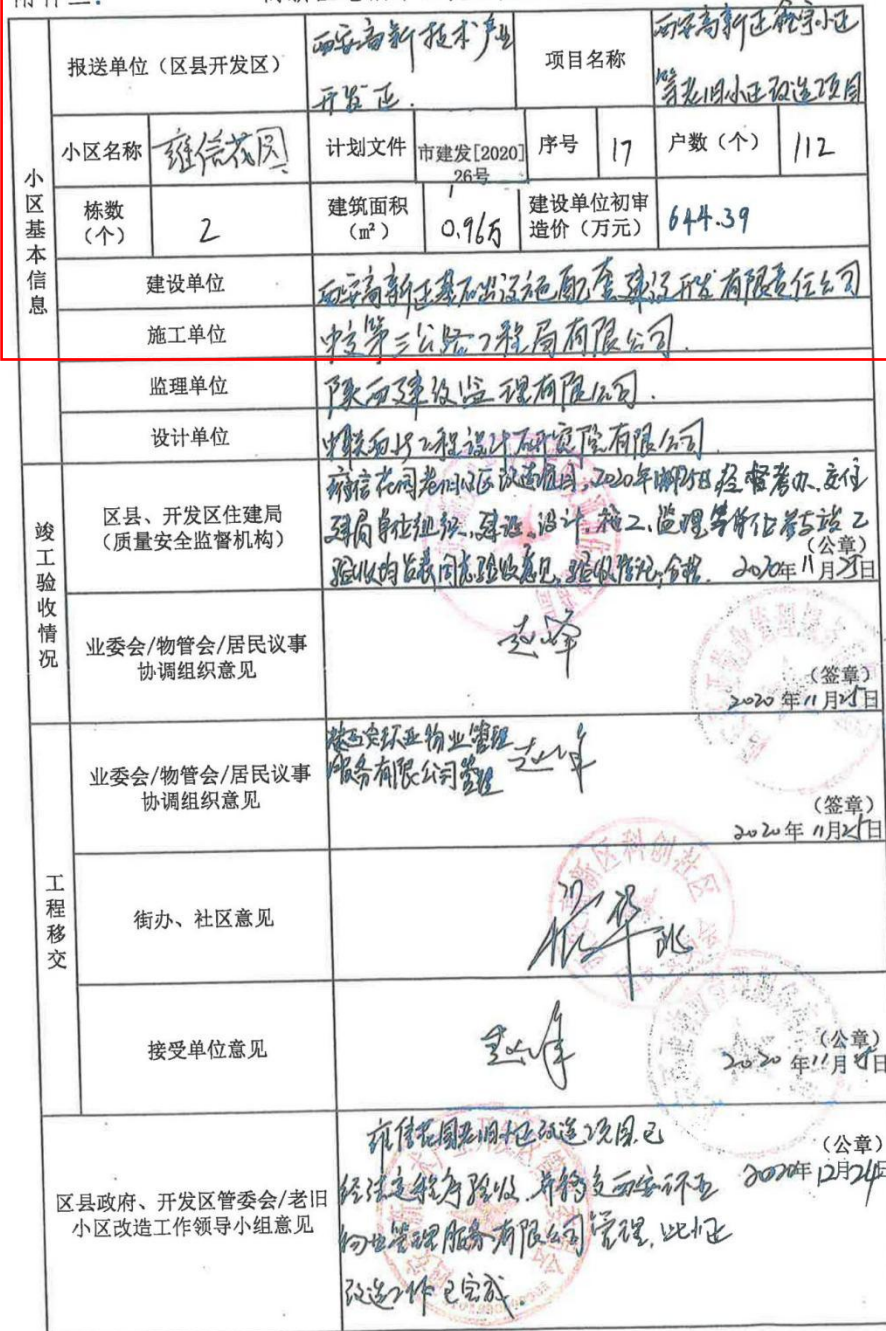 附件二:
报送单位（区县开发区）
西安高新技术产业
开发区.
项目名称
西安高新区
等老旧小区改造项目
小区基本信息
小区名称
雍信花园
计划文件
市建发[2020]
26号
序号
17
户数（个）
112
栋数
（个）
2
建筑面积
（m²）
0.96万
建设单位初审
造价（万元）
644.39
建设单位
西安高新区基础设施配套建设开发有限责任公司
施工单位
中交第三公路工程局有限公司.
监理单位
陕西建设监理有限公司.
设计单位
中联西北工程设计研究院有限公司
竣工验收情况
区县、开发区住建局
（质量安全监督机构）
雍信花园老旧小区改造项目,2020年11月25日经督考办、交住
建局单位组织,建设、设计、施工、监理等单位参与竣工
验收均发表同意验收意见,验收结论:合格.
（公章）
2020年11月25日
业委会/物管会/居民议事
协调组织意见
（签章）
2020年11月25日
工程移交
业委会/物管会/居民议事
协调组织意见
西安环亚物业管理
服务有限公司管理
（签章）
2020年11月25日
街办、社区意见
高新区科创社区
接受单位意见
（公章）
2020年11月25日
区县政府、开发区管委会/老旧
小区改造工作领导小组意见
雍信花园老旧小区改造项目已
经法定程序验收,并移交西安环亚
物业管理服务有限公司管理,此小区
改造工作已完成.
（公章）
2020年12月24日